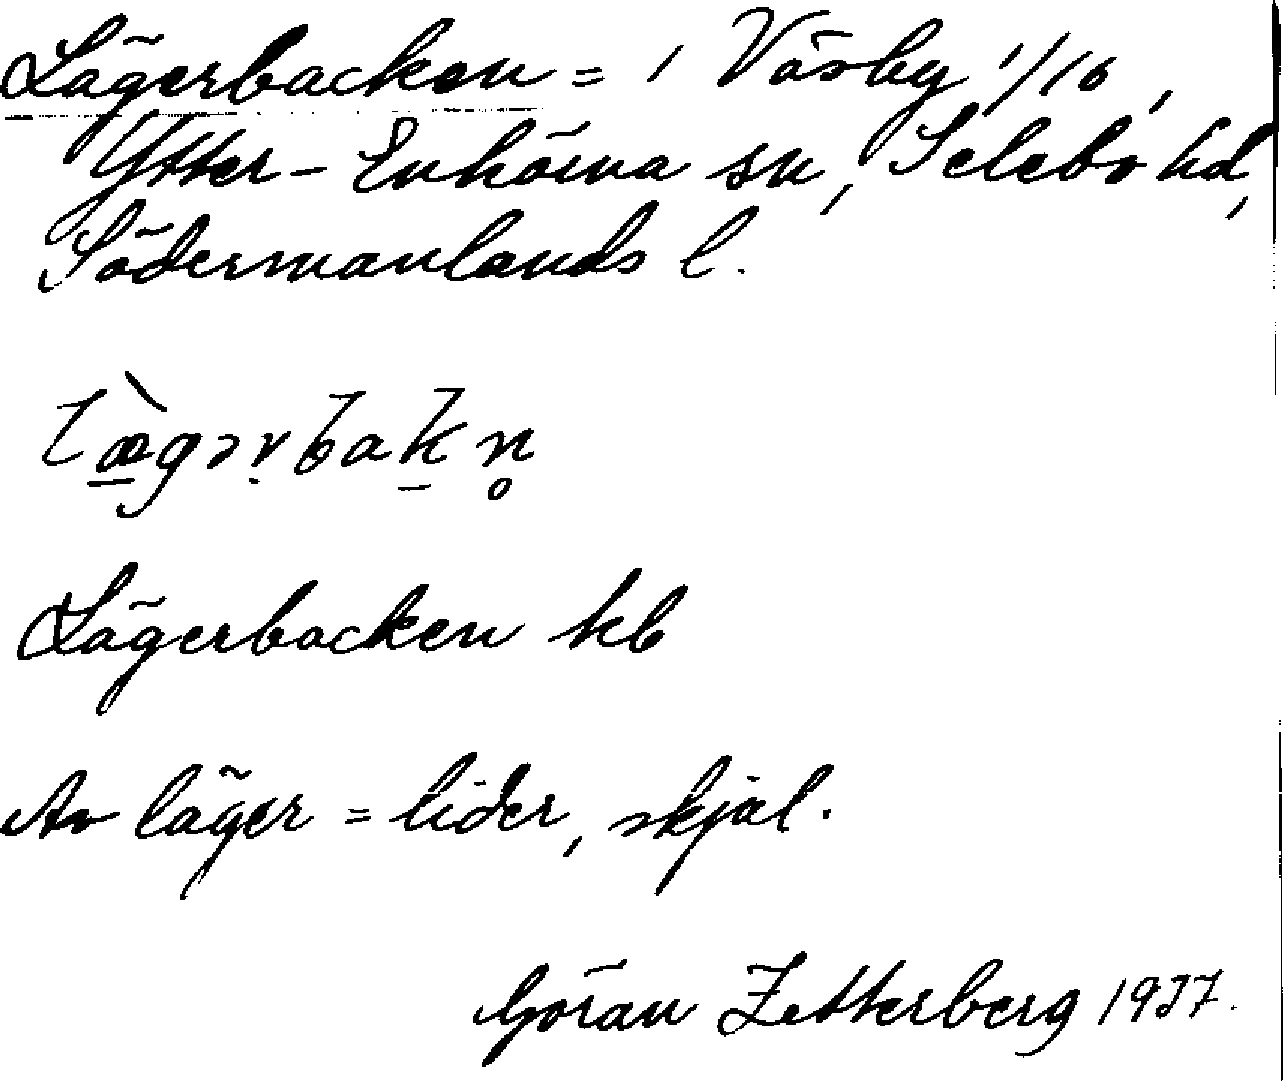 Lägerbacken = i Väsby 1/16,
Ytter-Enhörna sn, Selebo hd,
Södermanlands l.
lægərbakn̥
Lägerbacken kb
Av läger = lider, skjal.
Göran Zetterberg 1937.